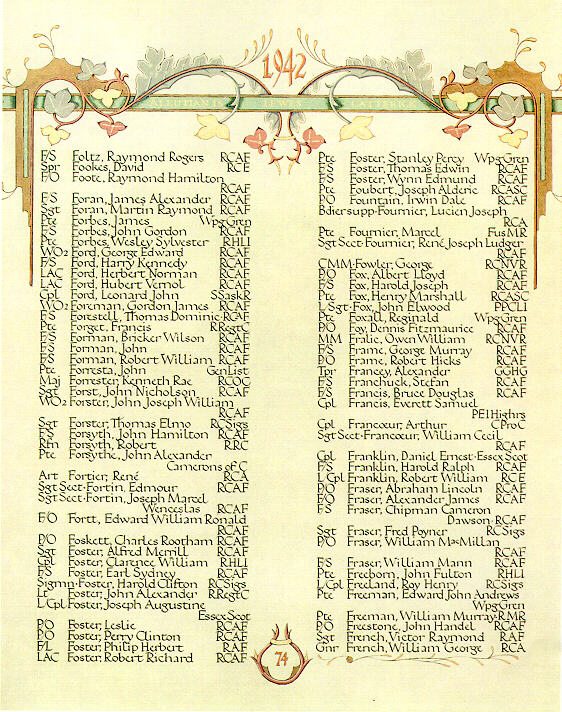 1942
F/S Foltz, Raymond Rogers RCAF
Spr Fookes, David RCE
F/O Foote, Raymond Hamilton
RCAF
F/S Foran, James Alexander RCAF
Sgt Foran, Martin Raymond RCAF
Pte Forbes, James WpgGren
F/S Forbes, John Gordon RCAF
Pte Forbes, Wesley Sylvester RHLI
WO2 Ford, George Edward RCAF
F/S Ford, Harry Kennedy RCAF
LAC Ford, Herbert Norman RCAF
LAC Ford, Hubert Vernol RCAF
Cpl Ford, Leonard John SSaskR
WO2 Foreman, Gordon James RCAF
F/S Forestell, Thomas Dominic·RCAF
Pte Forget, Francis RRegtC
F/S Forman, Bricker Wilson RCAF
F/S Forman, John RCAF
F/S Forman, Robert William RCAF
Pte Forresta, John GenList
Maj Forrester, Kenneth Rae RCOC
Sgt Forst, John Nicholson RCAF
WO2 Forster, John Joseph William
RCAF
Sgt Forster, Thomas Elmo RCSigs
F/S Forsyth, John Hamilton RCAF
Rfn Forsyth, Robert RRC
Pte Forsythe, John Alexander
Camerons of C
Art Fortier, René RCA
Sgt Sect·Fortin, Edmour RCAF
Sgt Sect·Fortin, Joseph Marcel
Wenceslas RCAF
F/O Fortt, Edward William Ronald
RCAF
P/O Foskett, Charles Rootham RCAF
Sgt Foster, Alfred Merrill RCAF
Cpl Foster, Clarence William RHLI
F/S Foster, Earl Sydney RCAF
Sigmn·Foster, Harold Clifton RCSigs
Lt Foster, John Alexander RRegtC
L/Cpl Foster, Joseph Augustine
EssexScot
P/O Foster, Leslie RCAF
P/O Foster, Perry Clinton RCAF
F/L Foster, Philip Herbert RAF
LAC Foster, Robert Richard RCAF
Pte Foster, Stanley Percy WpgGren
F/S Foster, Thomas Edwin RCAF
F/S Foster, Wynn Edmund RCAF
Pte Foubert, Joseph Alderic RCASC
P/O Fountain, Irwin Dale RCAF
Bdier supp·Fournier, Lucien Joseph
RCA
Pte Fournier, Marcel FusMR
Sgt Sect·Fournier, René Joseph Ludger
RCAF
CMM·Fowler, George RCNVR
P/O Fox, Albert Lloyd RCAF
F/S Fox, Harold Joseph RCAF
Pte Fox, Henry Marshall RCASC
L/Sgt·Fox, John Elwood PPCLI
Pte Foxall, Reginald WpgGren
P/O Foy, Dennis Fitzmaurice RCAF
MM Fralic, Owen William RCNVR
F/S Frame, George Murray RCAF
P/O Frame, Robert Hicks RCAF
Tpr Francey, Alexander GGHG
F/S Franchuck, Stefan RCAF
F/S Francis, Bruce Douglas RCAF
Cpl Francis, Everett Samuel
PEIHighrs
Cpl Francœur, Arthur CProC
Sgt Sect·Francœur, William Cecil
RCAF
Cpl Franklin, Daniel Ernest·EssexScot
F/S Franklin, Harold Ralph RCAF
L/Cpl Franklin, Robert William RCE
P/O Fraser, Abraham Lincoln RCAF
P/O Fraser, Alexander James RCAF
F/S Fraser, Chipman Cameron
Dawson·RCAF
Sgt Fraser, Fred Poyner RCSigs
P/O Fraser, William MacMillan
RCAF
F/S Fraser, William Mann RCAF
Pte Freeborn, John Fulton RHLI
L/Cpl Freeland, Roy Henry RCSigs
Pte Freeman, Edward John Andrews
WpgGren
Pte Freeman, William Murray·RMR
P/O Freestone, John Handel RCAF
Sgt French, Victor Raymond RAF
Gnr French, William George RCA
74